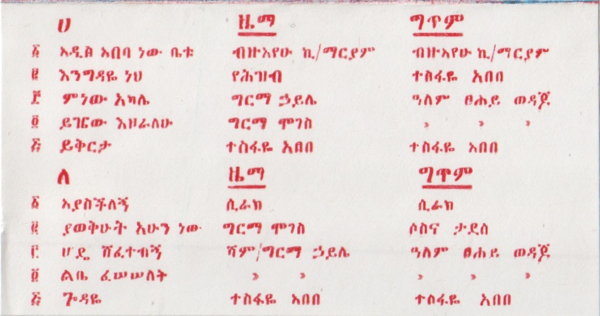 ሀ ዜማ ግጥም
፩ አዲስ አበባ ነው ቤቱ ብዙአየሁ ኪ/ማርያም ብዙአየሁ ኪ/ማርያም
፪ እንግዳዬ ነህ የሕዝብ ተስፋዬ አበበ
፫ ምነው አካሌ ግርማ ኃይሌ ዓለም ፀሐይ ወዳጆ
፬ ይገርመው እዞራለሁ ግርማ ሞገስ » » »
፭ ይቅርታ ተስፋዬ አበበ ተስፋዬ አበበ
ለ ዜማ ግጥም
፩ አያስችለኝ ሲራክ ሲራክ
፪ ያወቅሁት አሁን ነው ግርማ ሞገስ ሶስና ታደሰ
፫ ሆዴ ሸፈተብኝ ሻም/ግርማ ኃይሌ ዓለም ፀሐይ ወዳጆ
፬ ልቤ ፈሠሠለት » » » » »
፭ ጉዳዬ ተስፋዬ አበበ ተስፋዬ አበበ